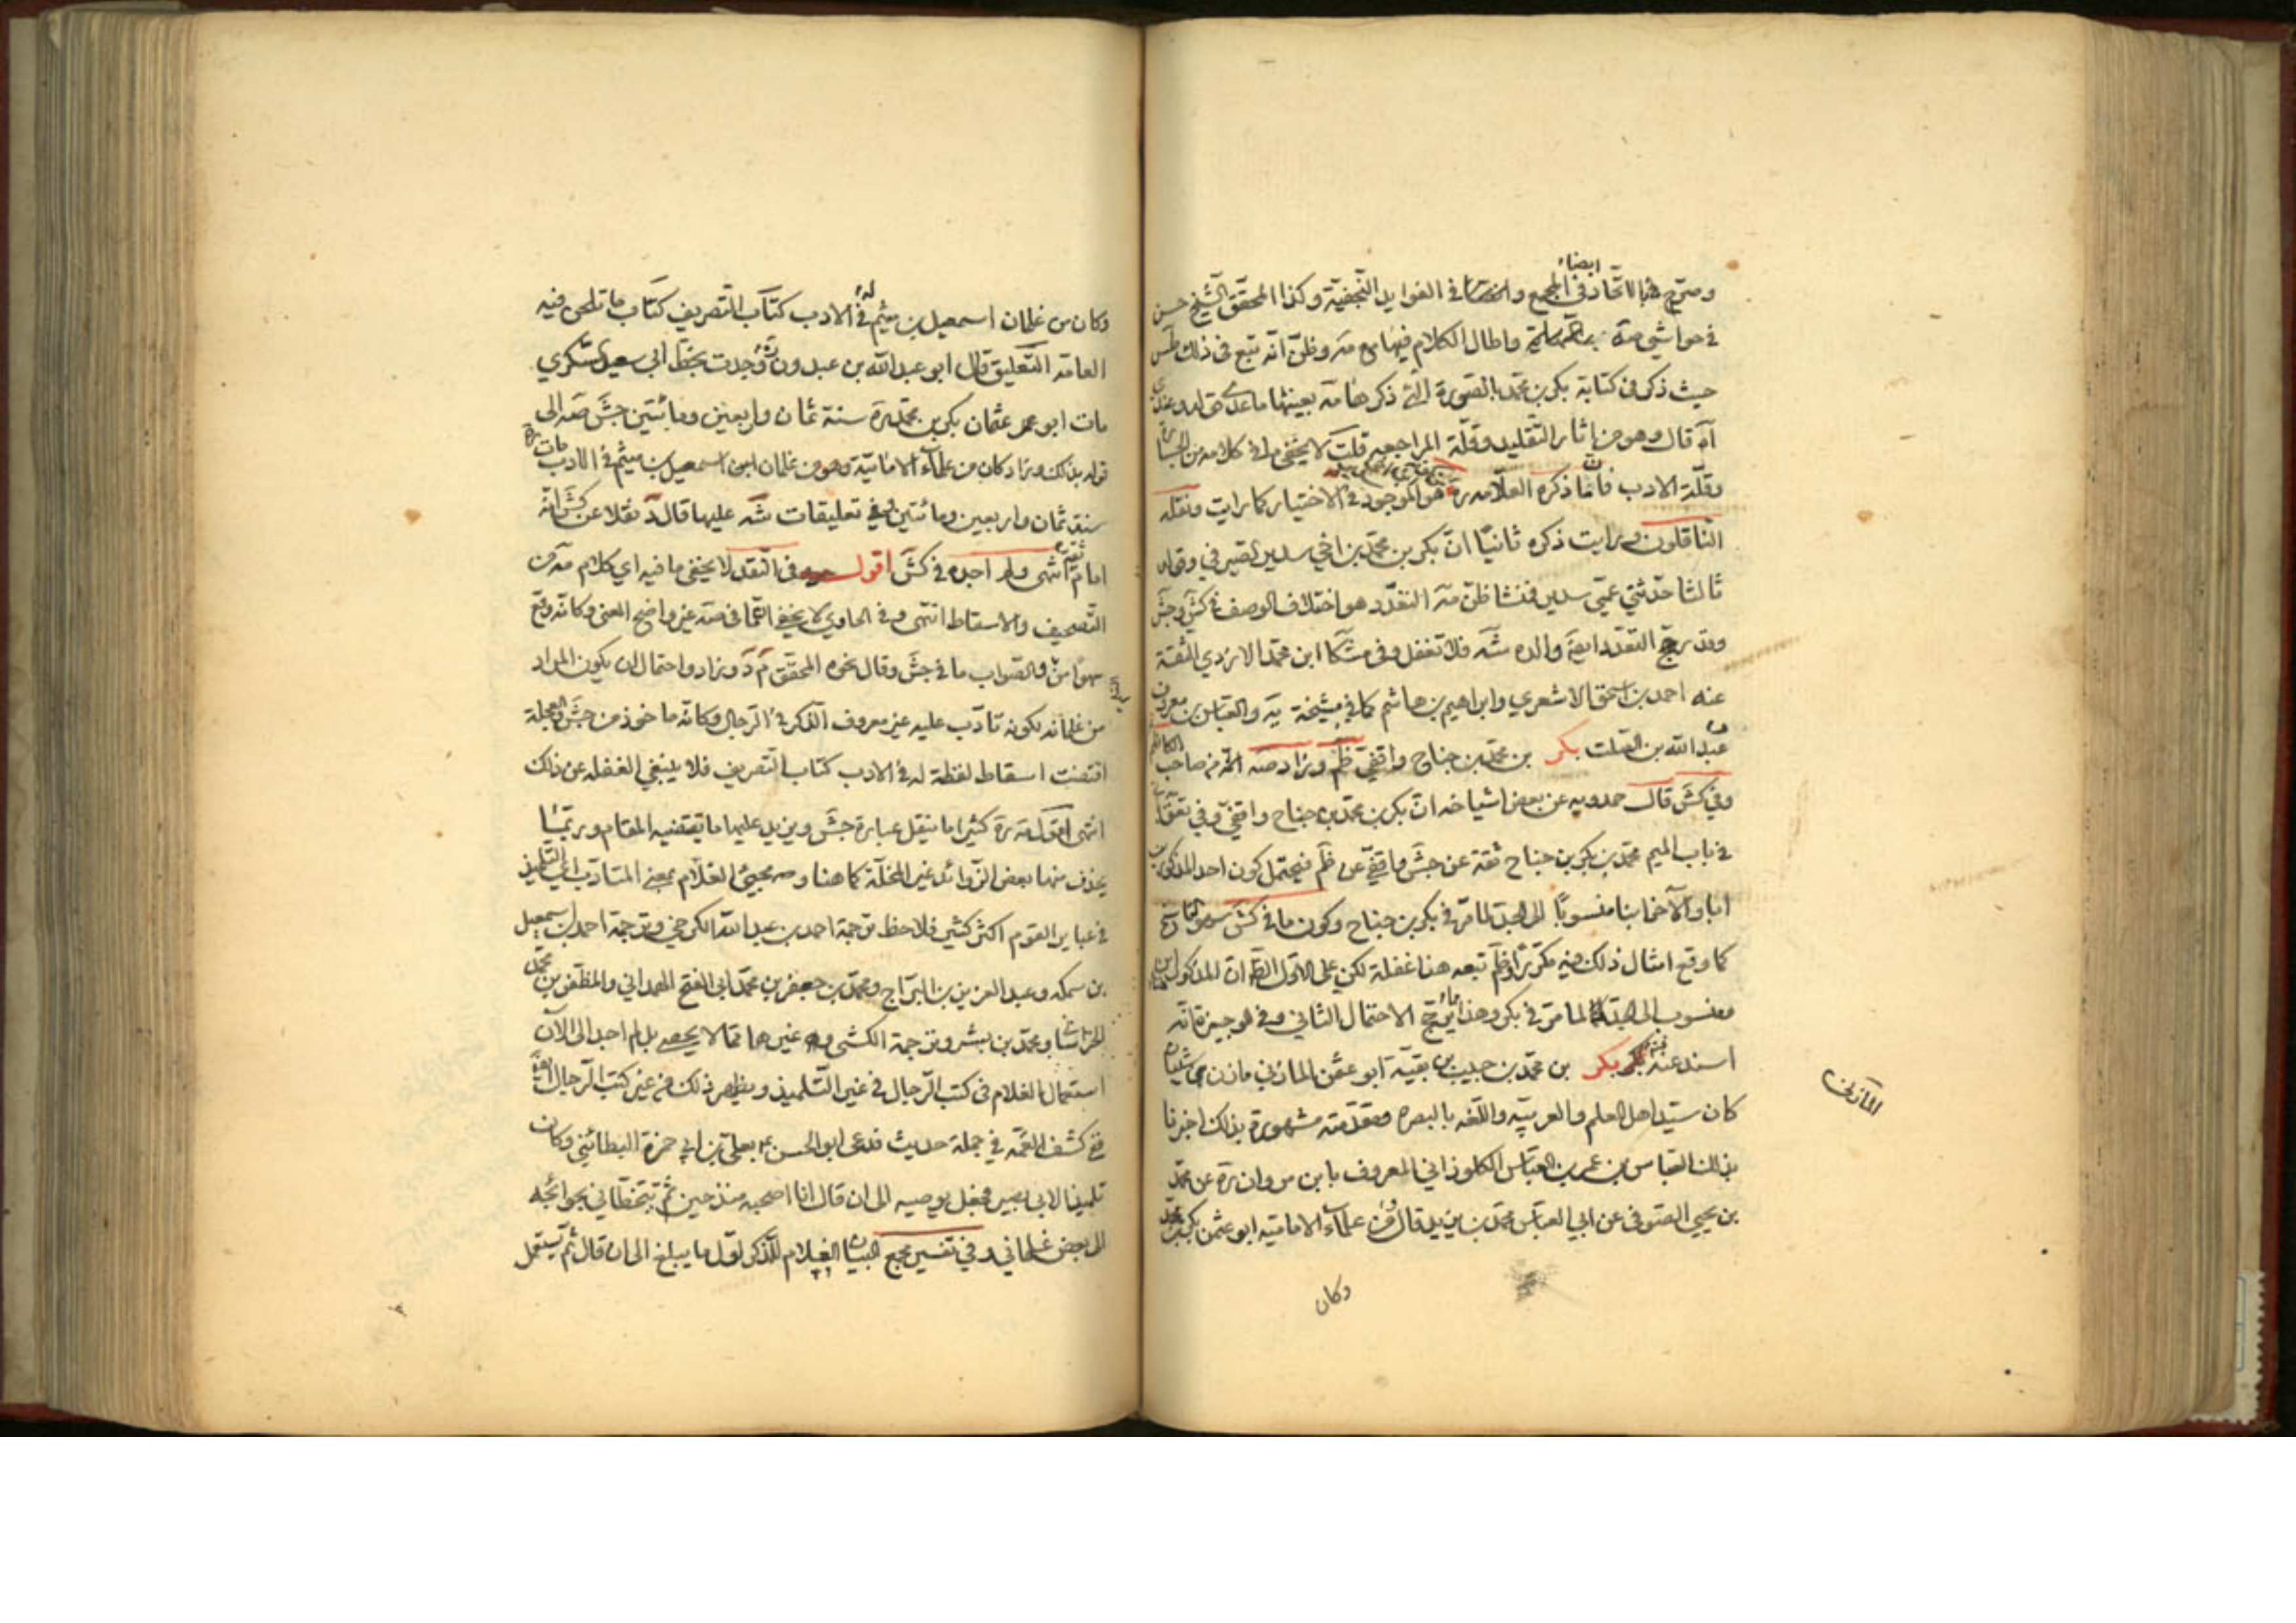 وصرح بالاتحاد في المجمع ايضا في الفوايد النجفية وكذا المحقق الشيخ حسن
في حواشي واطال الكلام فيها مع مة وظن انه تبع في ذلك طس
حيث ذكر في كتابة بكر بن محمد بالصورة التي ذكرها مة بعينها ما عدا قوله وعندي
آه قال وهو من اثار التقليد وقلة المراجعه قلت لا يخفى ما في كلامه من
وقلة الادب فان ما ذكره العلامه ره هو الموجود في الاختيار كما رايت ونقله
الناقلون ورايت ذكره ثانيا ان بكر بن محمد بن اخي سدير الصيرفي وقوله
ثالثا حدثني عمي سدير فمنشا ظن مة التعدد هو اختلاف الوصف في كش وجش
وقد رجح التعدد ايضا والده شه فلا تغفل وفي مشكا ابن محمد الازدي الثقة
عنه احمد بن اسحق الاشعري وابراهيم بن هاشم كما في مشيخة يه والعباس بن معروف
عبد الله بن الصلت بكر بن محمد بن جناح واقفي ظم وزاد صه
وفي كش قال حمدويه عن بعض اشياخه ان بكر بن محمد بن جناح واقفي وفي تعق
في باب الميم محمد بن بكر بن جناح ثقة عن جش واقفي عن ظم فيحتمل كون احد المذكورين
ابا والآخر ابنا منسوبا الى الجد لما مر في بكر بن جناح وكون ما في كش سهوا
كما وقع امثال ذلك فيه مكررا وظم تبعه هنا غفلة لكن على الاول الظ ان المذكور
منسوب الى الجد لما مر في بكر وهذا ربما يرجح الاحتمال الثاني وفي الوجيزة انه
اسند عنه بكر بن محمد بن حبيب بن بقية ابو عثمن المازني مازن بني شيبان
المازني
كان سيد اهل العلم والعربيه واللغه بالبصره ومقدمته مشهورة بذلك اخبرنا
بذلك العباس بن عمر بن العباس الكلوذاني المعروف بابن مروان ره عن محمد
بن يحيى الصوفي عن ابي العباس محمد بن يزيد قال ومن علماء الاماميه ابو عثمن بكر بن محمد
وكان
وكان من غلمان اسمعيل بن ميثم له في الادب كتاب التصريف كتاب ما تلحن فيه
العامة التعليق قال ابو عبد الله بن عبدون ره وجدت بخط ابي سعيد السكري
مات ابو عثمان بكر بن محمد ره سنة ثمان واربعين ومائتين جش صه الى
قوله بذلك وزاد كان من علماء الامامية وهو من غلمان اسمعيل بن ميثم في الادب مات
سنة ثمان واربعين ومائتين وفي تعليقات شه عليها قال د نقلا عن كش انه
امام ثقة انتهى ولم اجده في كش اقول في النقد لا يخفى ما فيه اي كلام مة من
التصحيف والاسقاط انتهى وفي الحاوي لا يخفى ان ما في صه غير واضح المعنى وكانه وقع
سهوا منه والصواب ما في جش وقال نحوه المحقق م د وزاد واحتمال ان يكون المراد
من غلمانه لكونه تادب عليه غير معروف الذكر في الرجال وكانه ماخوذ من جش والعجلة
اقتضت اسقاط لفظة له في الادب كتاب التصريف فلا ينبغي الغفله عن ذلك
انتهى اقول مة ره كثيرا ما ينقل عبارة جش ويزيد عليها ما يقتضيه المقام وربما
يحذف منها بعض الزوائد غير المخلة كما هنا ومجيئ الغلام بمعنى المتادب اي التلميذ
في عباير القوم اكثر كثير فلاحظ ترجمة احمد بن عبد الله الكرخي وترجمة احمد بن اسمعيل
بن سمكه وعبد العزيز بن البراج ومحمد بن جعفر بن محمد ابي الفتح الهمداني والمظفر بن محمد
الخراساني ومحمد بن بشر وترجمة الكشي وغيرها مما لا يحصى بل لم اجد الى الآن
استعمال الغلام في كتب الرجال في غير التلميذ ويظهر ذلك من غير كتب الرجال ايضا
ففي كشف الغمه في جملة حديث فدعى ابو الحسن ع بعلي بن ابي حمزة البطائني وكان
تلميذا لابي بصير فجعل يوصيه الى ان قال انا اصحبه منذ حين ثم تتخطاني بحوائجه
الى بعض غلماني وفي تفسير مجمع البيان الغلام للذكر اول ما يبلغ الى ان قال ثم يستعمل